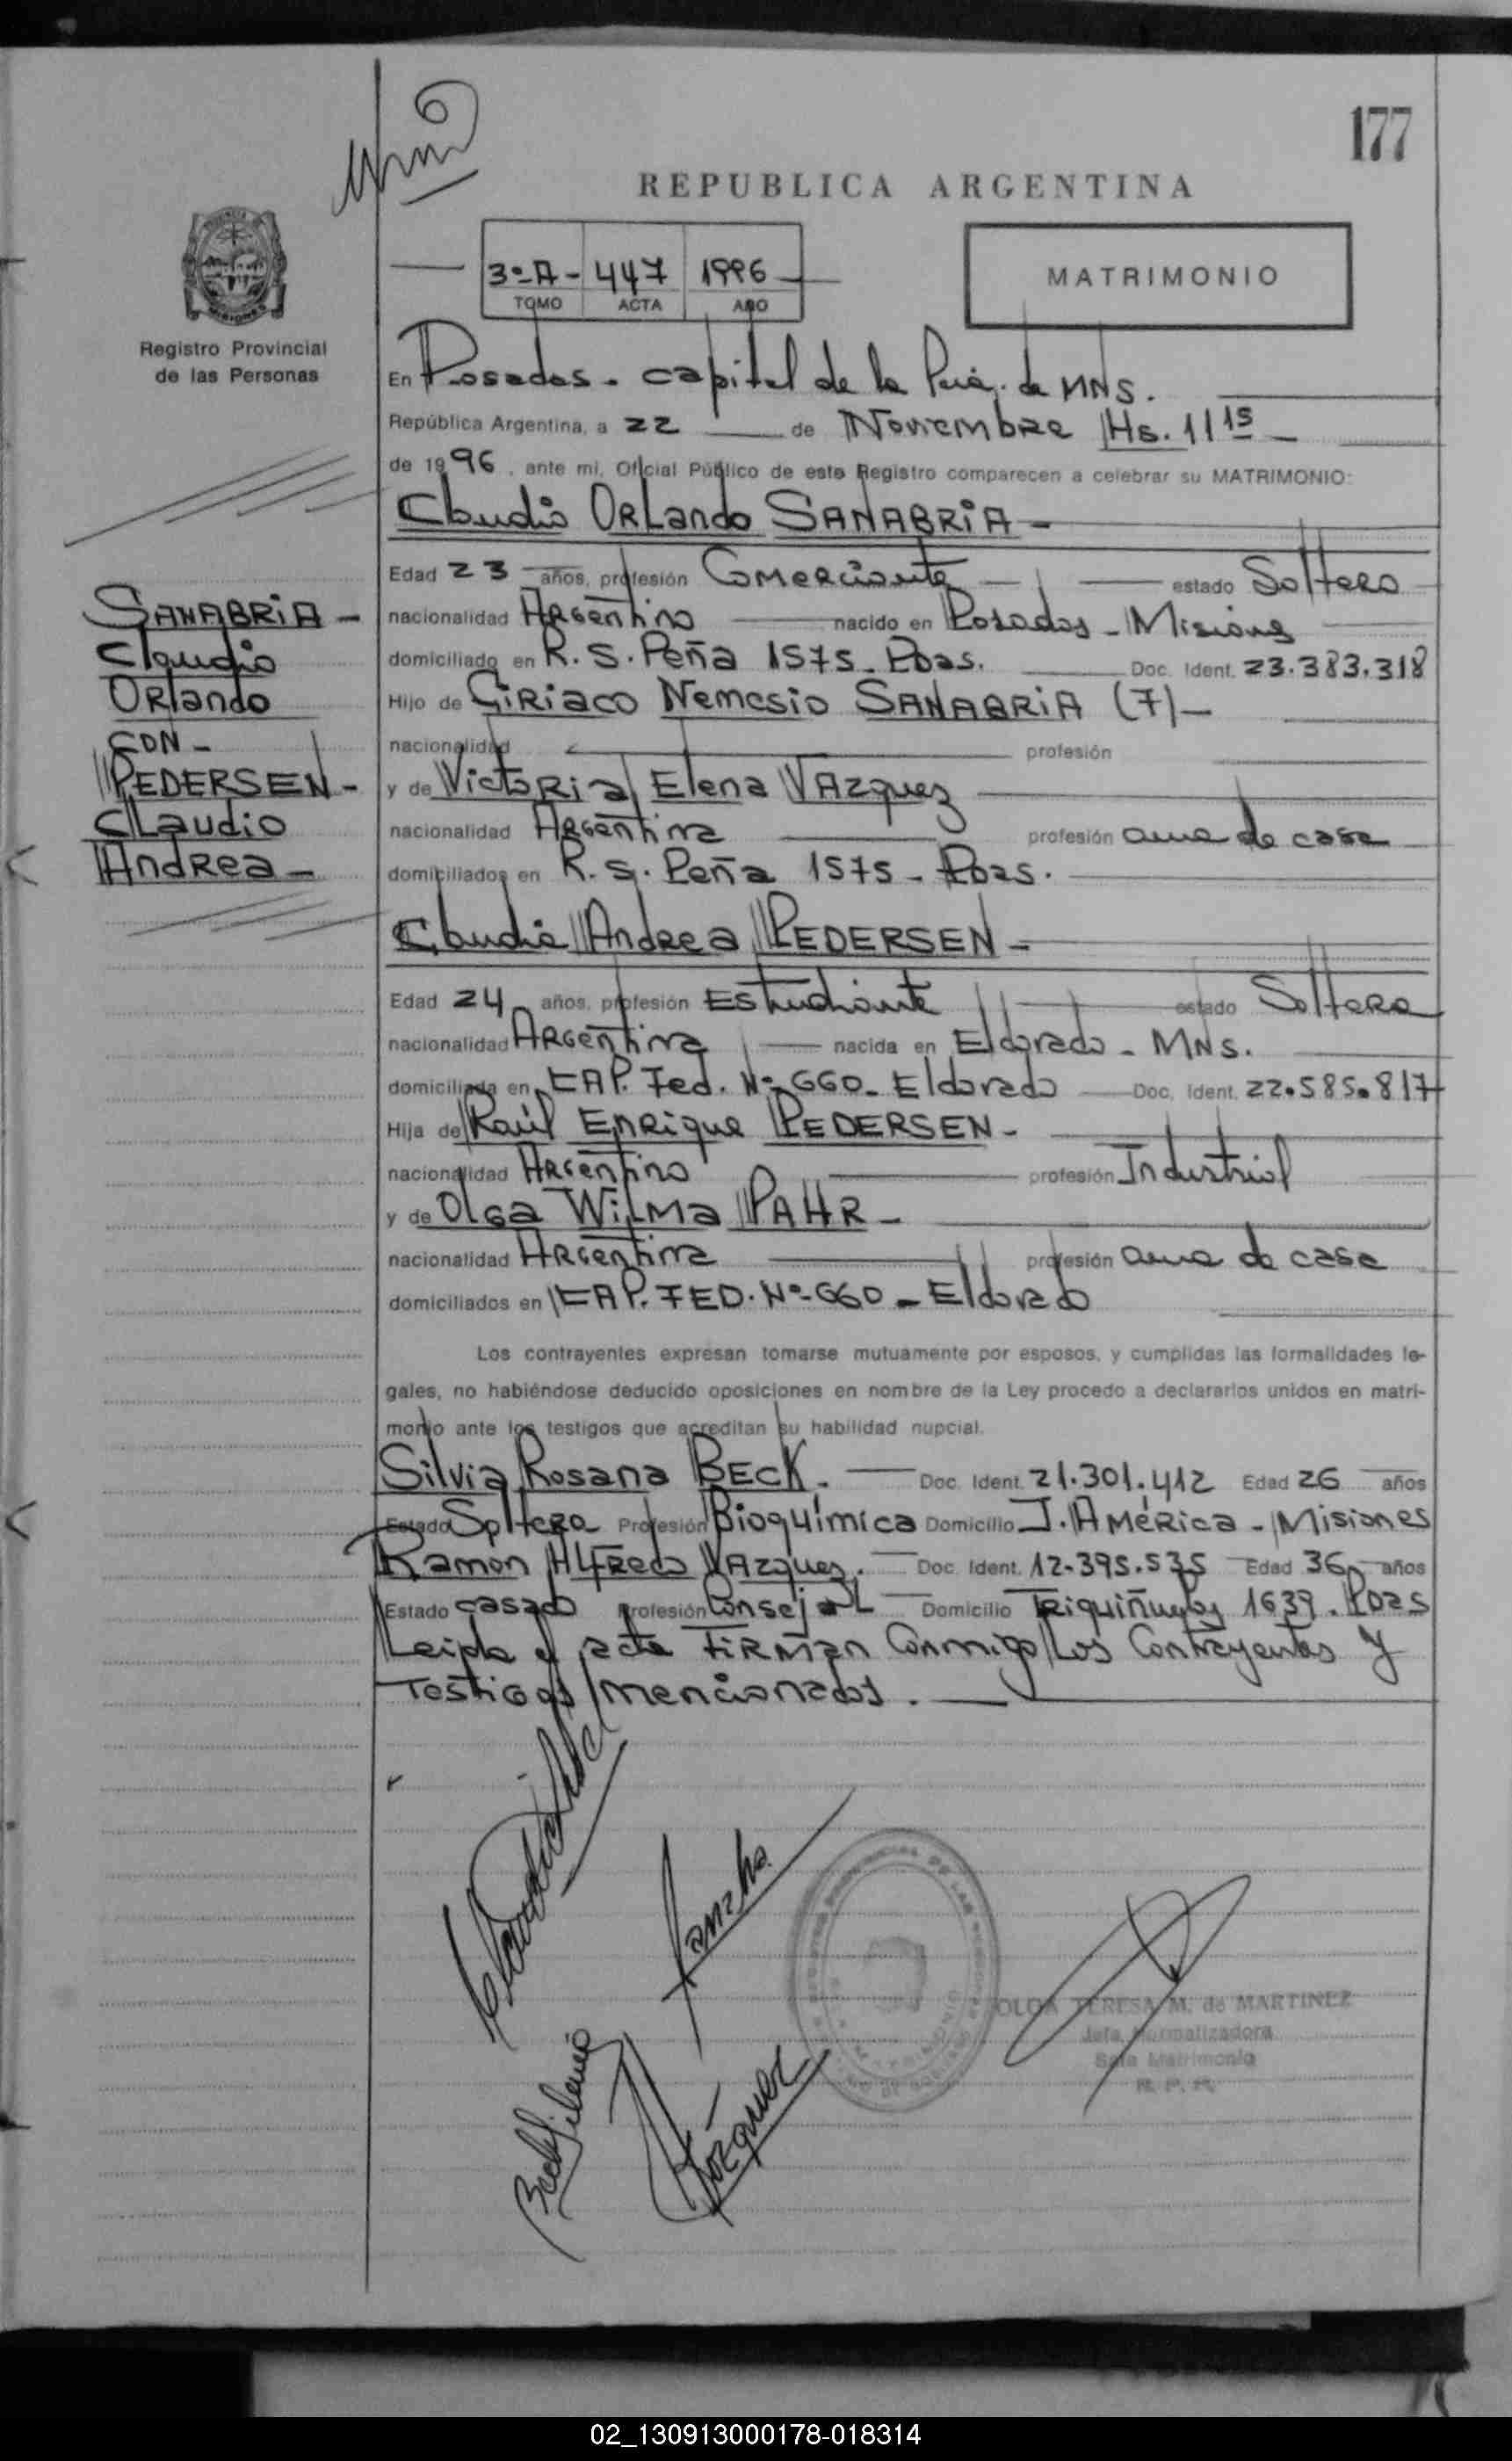 177
REPUBLICA ARGENTINA
3º-A- 447 1996
TOMO ACTA AÑO
MATRIMONIO
Registro Provincial
de las Personas
En Posadas - capital de la Pcia. de MNS.
República Argentina, a 22 de Noviembre Hs. 11 15
de 1996, ante mi, Oficial Público de este Registro comparecen a celebrar su MATRIMONIO:
Claudio Orlando SANABRIA -
Edad 23 años, profesión Comerciante estado Soltero
nacionalidad Argentino nacido en Posadas - Misiones
domiciliado en R. S. Peña 1575 - Pdas. Doc. Ident. 23.383.318
Hijo de Ciriaco Nemesio SANABRIA (7) -
nacionalidad profesión
y de Victoria Elena VAzquez
nacionalidad Argentina profesión ama de casa
domiciliados en R. S. Peña 1575 - Pdas.
SANABRIA -
Claudio
Orlando
CON -
PEDERSEN -
CLaudio
Andrea -
Claudia Andrea PEDERSEN -
Edad 24 años, profesión Estudiante estado Soltera
nacionalidad Argentina nacida en Eldorado - MNS.
domiciliada en CAP. Fed. Nº 660 - Eldorado Doc. Ident. 22.585.817
Hija de Raúl Enrique PEDERSEN -
nacionalidad Argentino profesión Industrial
y de Olga Wilma PAHR -
nacionalidad Argentina profesión ama de casa
domiciliados en CAP. FED. Nº 660 - Eldorado
Los contrayentes expresan tomarse mutuamente por esposos, y cumplidas las formalidades le-
gales, no habiéndose deducido oposiciones en nombre de la Ley procedo a declararlos unidos en matri-
monio ante los testigos que acreditan su habilidad nupcial.
Silvia Rosana BECK. Doc. Ident. 21.301.412 Edad 26 años
Estado Soltera Profesión Bioquímica Domicilio J. América - Misiones
Ramon Alfredo VAzquez. Doc. Ident. 12.395.535 Edad 36 años
Estado casado Profesión Consejal Domicilio 1639. Pdas
Leida el acta FIRMan Conmigo Los Contrayentes y
Testigos mencionados.
Vázquez
OLGA TERESA M. de MARTINEZ
Jefa Normalizadora
Sala Matrimonio
R. P. P.
02_130913000178-018314